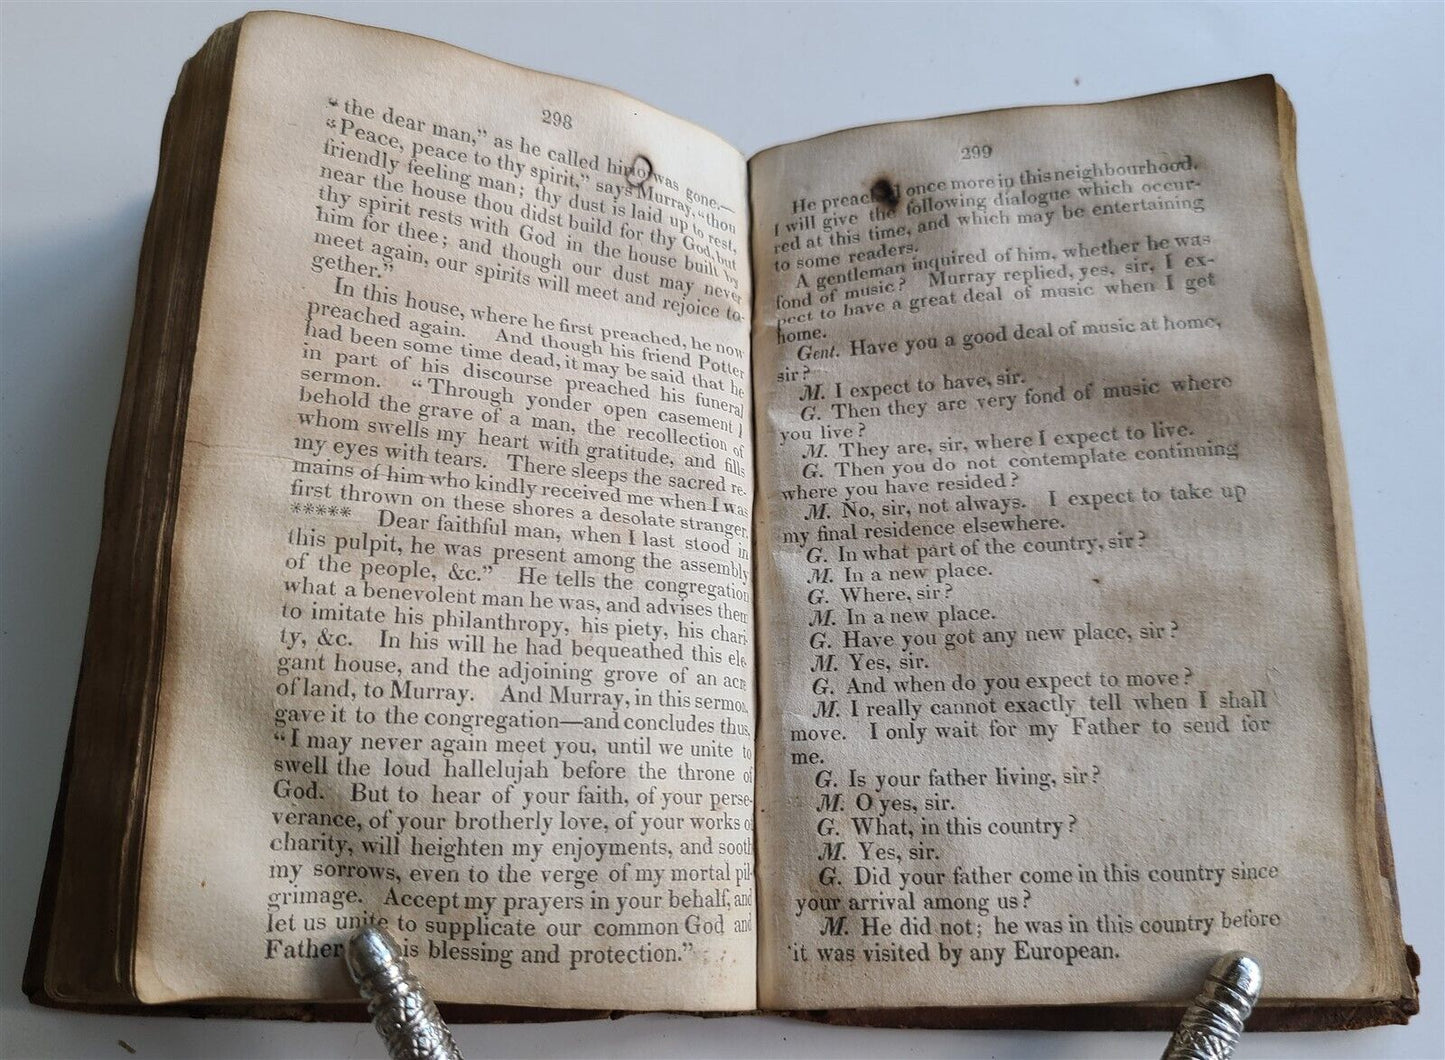 298
“the dear man,” as he called him, was gone.—
“Peace, peace to thy spirit,” says Murray, “thou
friendly feeling man; thy dust is laid up to rest,
near the house thou didst build for thy God, but
thy spirit rests with God in the house built by
him for thee; and though our dust may never
meet again, our spirits will meet and rejoice to-
gether.”
In this house, where he first preached, he now
preached again. And though his friend Potter
had been some time dead, it may be said that he
in part of his discourse preached his funeral
sermon. “Through yonder open casement I
behold the grave of a man, the recollection of
whom swells my heart with gratitude, and fills
my eyes with tears. There sleeps the sacred re-
mains of him who kindly received me when I was
first thrown on these shores a desolate stranger.
***** Dear faithful man, when I last stood in
this pulpit, he was present among the assembly
of the people, &c.” He tells the congregation
what a benevolent man he was, and advises them
to imitate his philanthropy, his piety, his chari-
ty, &c. In his will he had bequeathed this ele-
gant house, and the adjoining grove of an acre
of land, to Murray. And Murray, in this sermon,
gave it to the congregation—and concludes thus,
“I may never again meet you, until we unite to
swell the loud hallelujah before the throne of
God. But to hear of your faith, of your perse-
verance, of your brotherly love, of your works of
charity, will heighten my enjoyments, and sooth
my sorrows, even to the verge of my mortal pil-
grimage. Accept my prayers in your behalf, and
let us unite to supplicate our common God and
Father is blessing and protection.”
299
He preached once more in this neighbourhood.
I will give the following dialogue which occur-
red at this time, and which may be entertaining
to some readers.
A gentleman inquired of him, whether he was
fond of music? Murray replied, yes, sir, I ex-
pect to have a great deal of music when I get
home.
Gent. Have you a good deal of music at home,
sir?
M. I expect to have, sir.
G. Then they are very fond of music where
you live?
M. They are, sir, where I expect to live.
G. Then you do not contemplate continuing
where you have resided?
M. No, sir, not always. I expect to take up
my final residence elsewhere.
G. In what part of the country, sir?
M. In a new place.
G. Where, sir?
M. In a new place.
G. Have you got any new place, sir?
M. Yes, sir.
G. And when do you expect to move?
M. I really cannot exactly tell when I shall
move. I only wait for my Father to send for
me.
G. Is your father living, sir?
M. O yes, sir.
G. What, in this country?
M. Yes, sir.
G. Did your father come in this country since
your arrival among us?
M. He did not; he was in this country before
it was visited by any European.